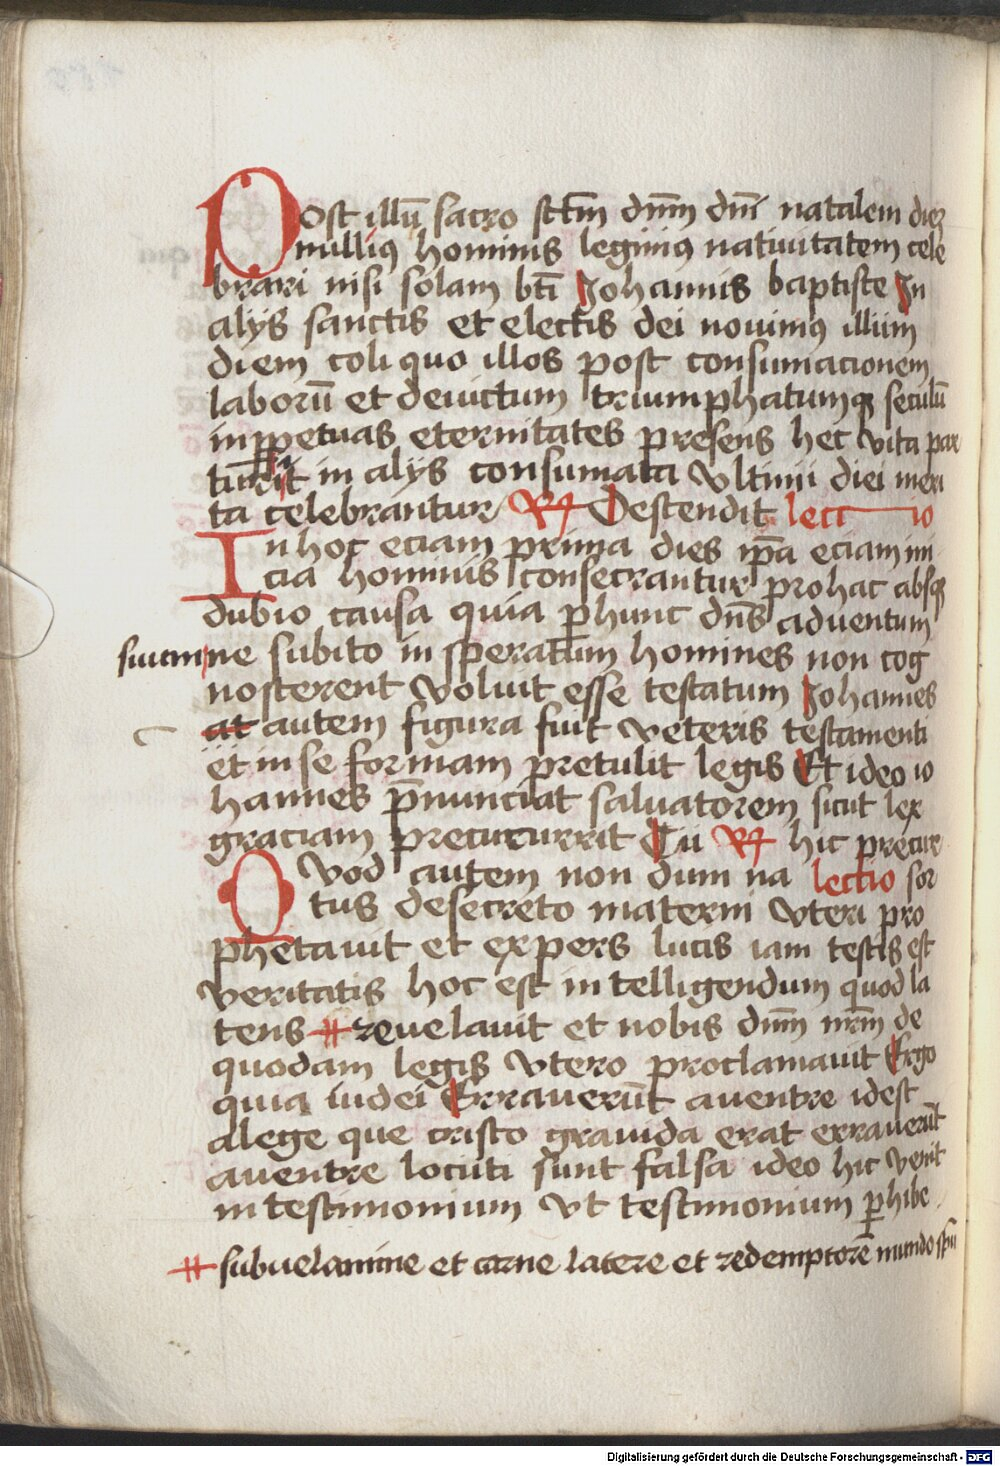 Post illū sacro sctm̄ dnm̄ dnī natalem diez
nullius hominis legimus natiuitatem cele
brari nisi solam btī Johannis baptiste In
alijs sanctis et electis dei nouimus illum
diem coli quo illos post consumacionem
laborū et deuictum triumphatumqȝ seculū
in ꝑpetuas eternitates presens hec vita par
turit in alijs consumata vltimi diei meri
ta celebrantur ℟ Descendit lectio
In hoc eciam prima dies ip̄a eciam ini
cia hominis consecrantur pro hac absqȝ
dubio causa quia ꝑ hunc dn̄s aduentum
suum ne subito in speratum homines non cog
noscerent voluit esse testatum Johannes
at autem figura fuit veteris testamenti
et in se formam pretulit legis Et ideo io
hannes p̄nunciat saluatorem sicut lex
graciam precucurrit Tu ℟ hic precur
Quod autem non dum na lectio
tus de secreto materni vteri pro
phetauit et expers lucis iam testis est
veritatis hoc est in telligendum quod la
tens # reuelauit et nobis dnm̄ nrm̄ de
quodam legis vtero proclamauit Ergo
quia iudei Errauerūt auentre idest
alege que cristo grauida erat errauerūt
auentre locuti sunt falsa ideo hic venit
in testimonium vt testimonium ꝑhibe
# subuelamine et carne latere et redemptorē mundo
Digitalisierung gefördert durch die Deutsche Forschungsgemeinschaft - DFG